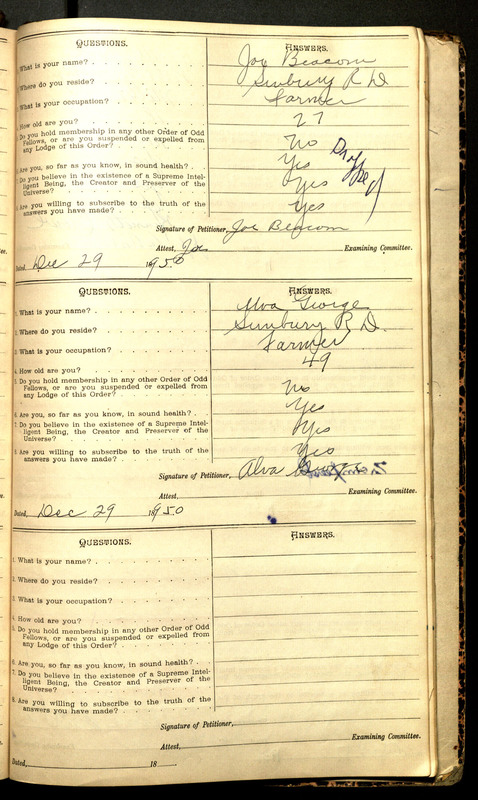 QUESTIONS. ANSWERS.
1. What is your name? Joy Beacom
2. Where do you reside? Sunbury R D
3. What is your occupation? Farmer
4. How old are you? 27
5. Do you hold membership in any other Order of Odd
Fellows, or are you suspended or expelled from
any Lodge of this Order? No
6. Are you, so far as you know, in sound health? Yes
Dropped
7. Do you believe in the existence of a Supreme Intel-
ligent Being, the Creator and Preserver of the
Universe? Yes
8. Are you willing to subscribe to the truth of the
answers you have made? Yes
Signature of Petitioner, Joe Beacom
Attest, Joe Examining Committee.
Dated, Dec 29 1950
QUESTIONS. ANSWERS.
1. What is your name? Alva George
2. Where do you reside? Sunbury R D.
3. What is your occupation? Farmer
4. How old are you? 49
5. Do you hold membership in any other Order of Odd
Fellows, or are you suspended or expelled from
any Lodge of this Order? No
6. Are you, so far as you know, in sound health? Yes
7. Do you believe in the existence of a Supreme Intel-
ligent Being, the Creator and Preserver of the
Universe? Yes
8. Are you willing to subscribe to the truth of the
answers you have made? Yes
Signature of Petitioner, Alva
Attest, Examining Committee.
Dated, Dec 29 1950
QUESTIONS. ANSWERS.
1. What is your name?
2. Where do you reside?
3. What is your occupation?
4. How old are you?
5. Do you hold membership in any other Order of Odd
Fellows, or are you suspended or expelled from
any Lodge of this Order?
6. Are you, so far as you know, in sound health?
7. Do you believe in the existence of a Supreme Intel-
ligent Being, the Creator and Preserver of the
Universe?
8. Are you willing to subscribe to the truth of the
answers you have made?
Signature of Petitioner,
Attest, Examining Committee.
Dated, 18